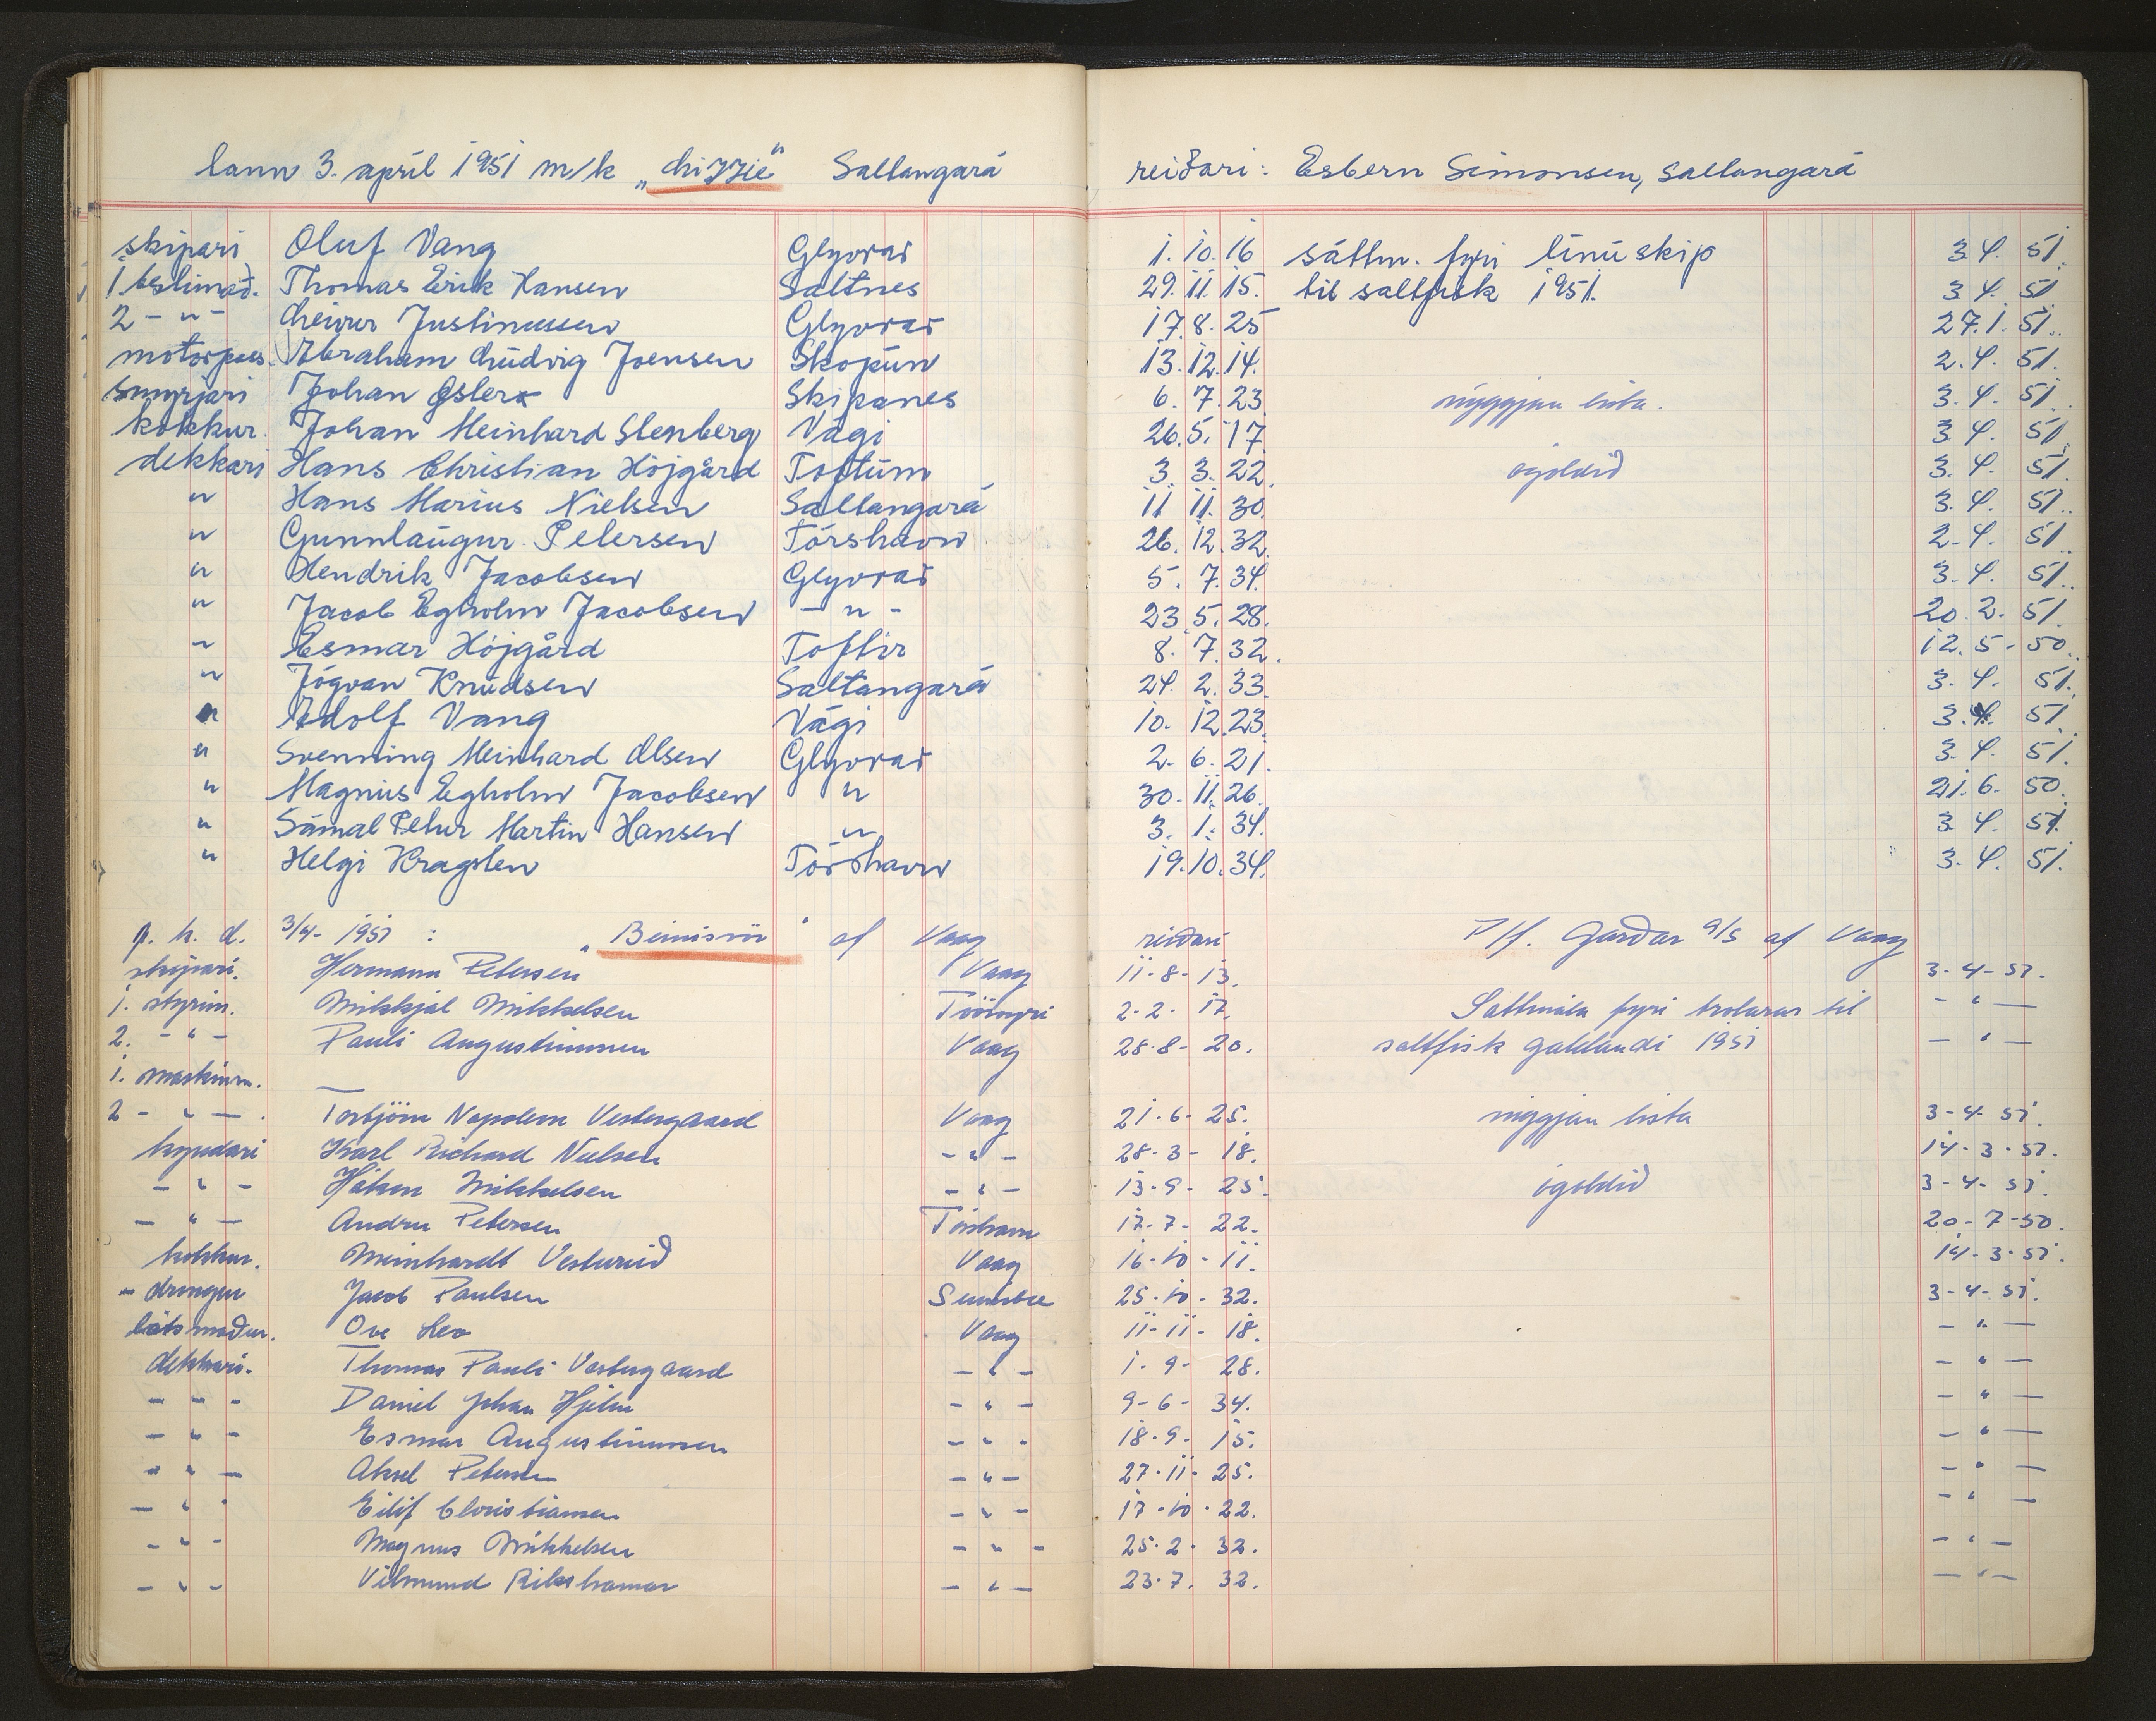 3. apríl 1951 m/k „Lizzie" Saltangará reiðari: Esbern Simonsen, Saltangará
skipari Oluf Vang Glyvrar 1. 10. 16 sáttm. fyri línuskip 3. 4. 51.
1 bestimað. Thomas Erik Hansen Saltnes 29. 11. 15. til saltfisk 1951. 3. 4. 51
2 - " - Justinussen Glyvrar 17. 8. 25 27. 1. 51.
motorpass. Abraham Ludvig Joensen Skopun 13. 12. 14. 2. 4. 51.
smyrjari Johan Øster Skipanes 6. 7. 23. nýggjan lista. 3. 4. 51.
kokkur. Johan Meinhard Stenberg Vági 26. 5. 17. 3. 4. 51.
dekkari Hans Christian Højgård Toftum 3. 3. 22. ógoldið 3. 4. 51.
" Hans Marius Nielsen Saltangará 11 11. 30. 3. 4. 51.
" Gunnlaugur Petersen Tórshavn 26. 12. 32. 2. 4. 51.
" Hendrik Jacobsen Glyvrar 5. 7. 34. 3. 4. 51.
" Jacob Egholm Jacobsen - " - 23. 5. 28. 20. 2. 51.
" Esmar Højgård Toftir 8. 7. 32. 12. 5 - 50.
" Jógvan Knudsen Saltangará 24. 2. 33. 3. 4. 51.
" Adolf Vang Vági 10. 12. 23. 3. 4. 51
" Svenning Meinhard Olsen Glyvrar 2. 6. 21. 3. 4. 51.
" Magnus Egholm Jacobsen " 30. 11. 26. 21. 6. 50.
" Sámal Petur Martin Hansen " 3. 1. 34. 3. 4. 51.
" Helgi Kragsten Tórshavn 19. 10. 34. 3. 4. 51.
p. h. d. 3/4- 1951 : „Beinisvör" af Vaag reiðari P/f. Garðar a/s af Vaag
skipari. Hermann Petersen Vaag 11-8-13. 3-4-51.
1. styrim. Mikkjal Mikkelsen 2-2-17. Sáttmála fyri trolarar til - " -
2. - " - Pauli Augustinussen Vaag 28-8-20. saltfisk galdandi 1951 - " -
1. maskinm.
2 - " - . Torbjörn Napoleon Vestergaard Vaag 21-6-25. nýggjan lista 3-4-51.
kyndari Karl Richard Nielsen - " - 28-3-18. 14-3-51.
- " - Hákun Mikkelsen - " - 13-9-25. ógoldið 3-4-51.
- " - Petersen Tórshavn 17-7-22. 20-7-50.
kokkur. Meinhardt Vesturlið Vaag 16-10-11. 14-3-51.
- drongur Jacob Paulsen Sumbø 25-10-32. 3-4-51.
bátsmaður. Ove Leo Vaag 11-11-18. - " -
dekkari. Thomas Pauli Vestergaard - " - 1-9-28. - " -
- " - Daniel Johan Hjelm - " - 9-6-34. - " -
- " - Esmar Augustinussen - " - 18-9-15. - " -
- " - Aksel Petersen - " - 27-11-25. - " -
- " - Eilif Christiansen - " - 17-10-22. - " -
- " - Magnus Mikkelsen - " - 25-2-32. - " -
- " - Vilmund - " - 23-7. 32. - " -